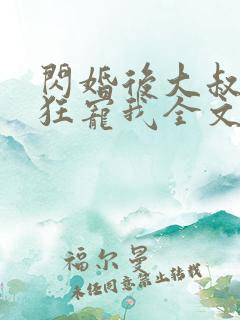 閃婚後大叔
狂寵我全文
福尔曼
未经同意禁止转载